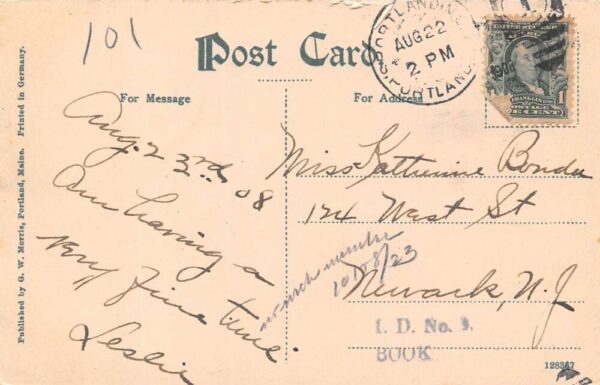 101
Post Card
For Message
For Address
PORTLAND, ME.
AUG 22
2 PM
1908
S. PORTLAND
1
FRANKLIN
POSTAGE
ONE CENT
Aug. 23rd, 08
Am having a
very fine time.
Leslie
Miss Katherine Bonda
124 West St
Newark, N.J
no such number
8/23
I. D. No. 9.
BOOK
Published by G. W. Morris, Portland, Maine. Printed in Germany.
128367